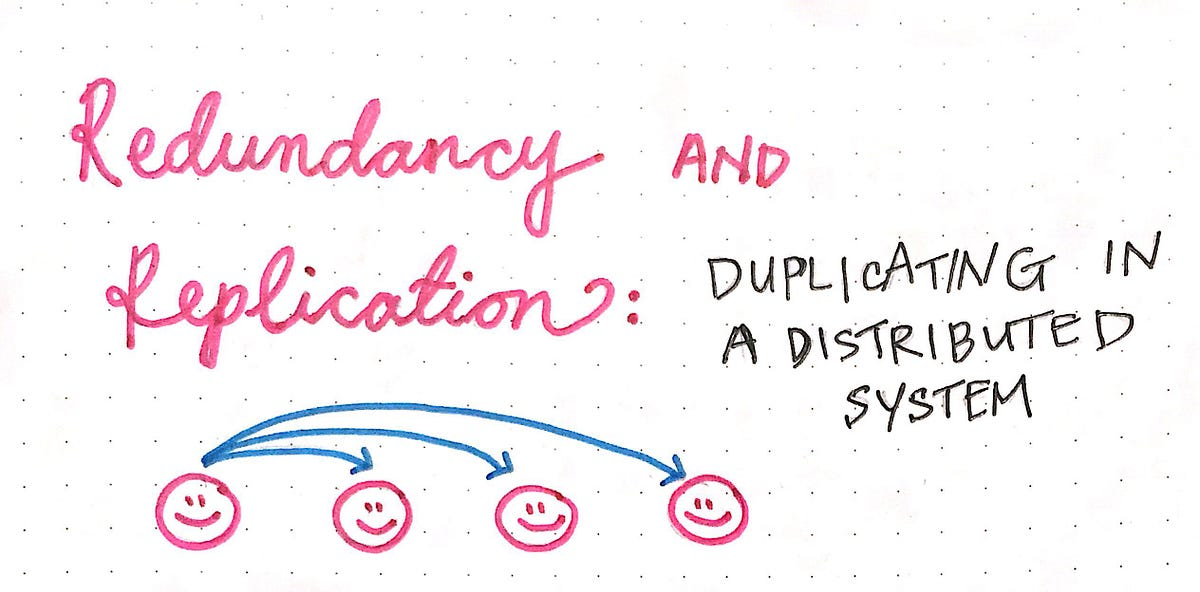 Redundancy AND
Replication:
DUPLICATING IN
A DISTRIBUTED
SYSTEM